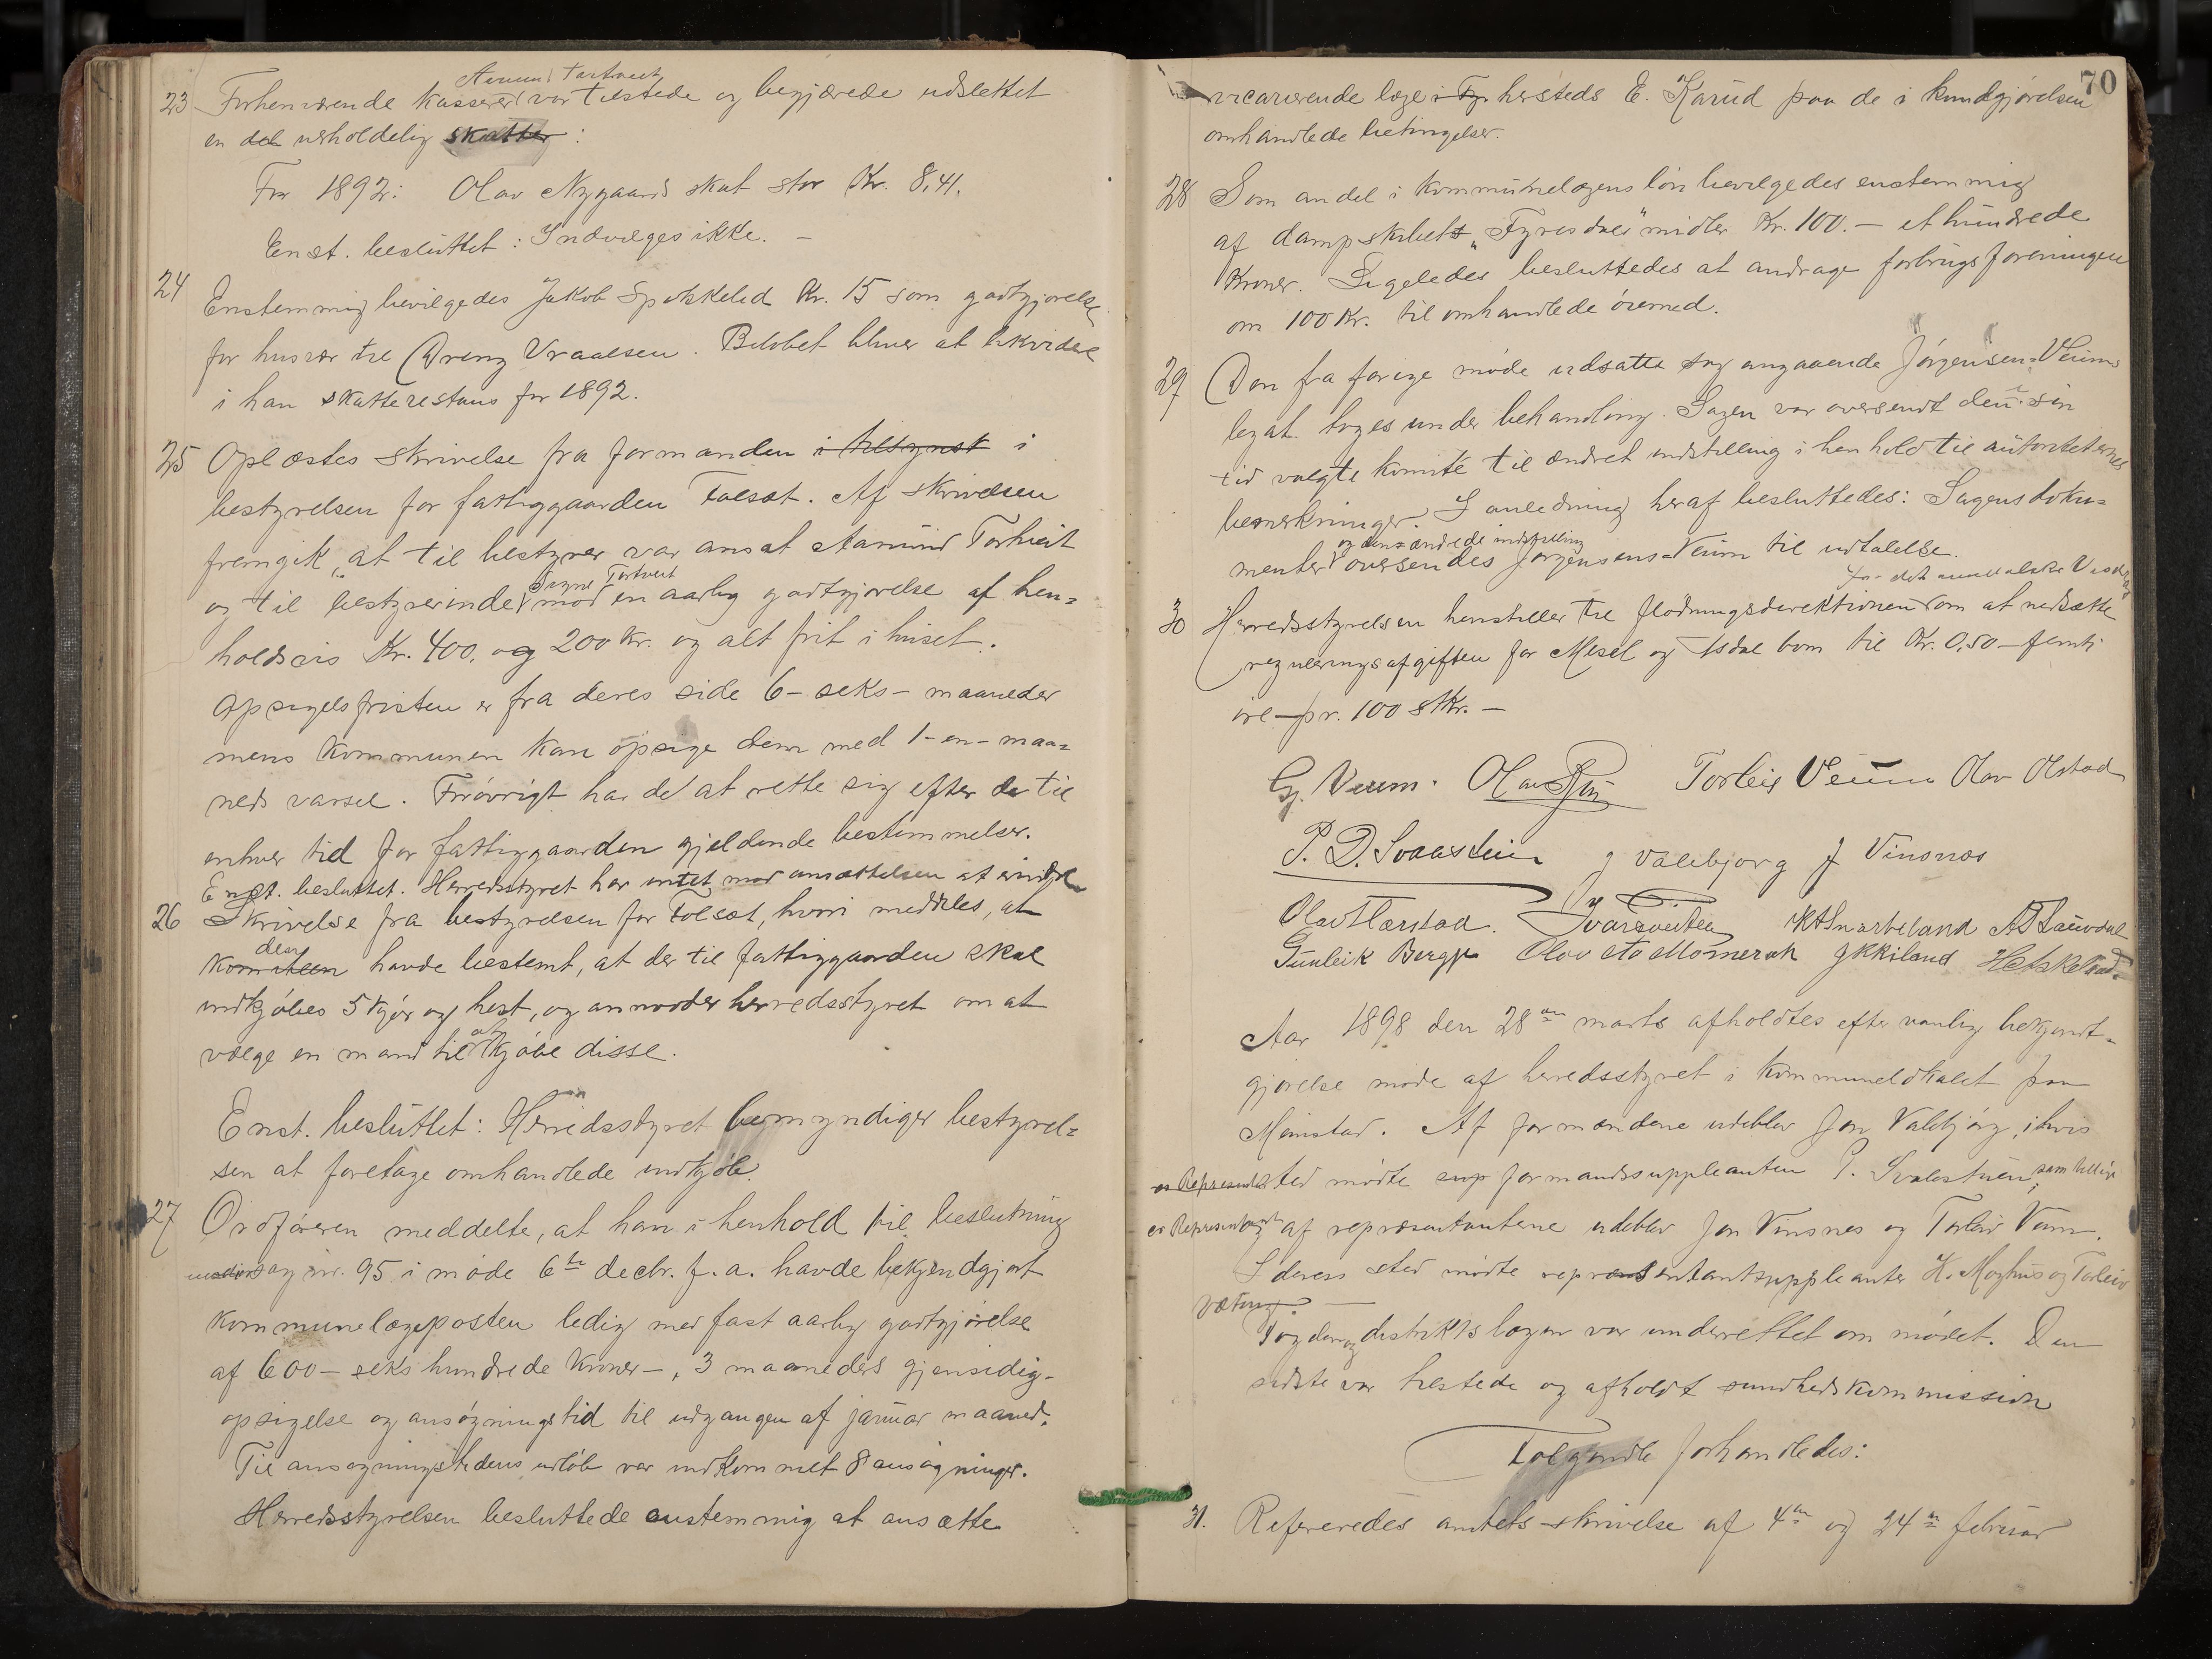 23 Forhenværende kasserer Aamund Tortveit var tilstede og begjærede udslettet
en del uerholdelig skatter:
For 1892: Olav Nygaards skat stor Kr. 8,41.
Enst. besluttet: Indvilges ikke. —
24 Enstemmig bevilgedes Jakob Spokkelid Kr. 15 som godtgjørelse
for husvær til Dreng Vraalsen. Beløbet bliver at likvidere
i han skatterestans for 1892.
25 Oplæstes skrivelse fra formanden i tilsynsk i
bestyrelsen for fattiggaarden Folsæt. Af skrivelsen
fremgik, at til bestyrer var ansat Aamund Tortveit
og til bestyrerinde Signe Tortveit mod en aarlig godtgjørelse af hen=
holdsvis Kr. 400, og 200 kr. og alt frit i huset.
Opsigelsfristen er fra deres side 6 – seks – maaneder
mens kommunen kan opsige dem med 1 – en – maa=
neds varsel. Forøvrigt har de at rette sig efter de til
enhver tid for fattiggaarden gjeldende bestemmelser.
Enst. besluttet. Herredsstyret har intet mod ansættelsen at erindre
26 Skrivelse fra bestyrelsen for Folsæt, hvori meddeles, at
komiteen den havde bestemt, at der til fattiggaarden skal
indkjøbes 5 kjør og hest, og anmoder herredsstyret om at
vælge en mand til at kjøbe disse.
Enst. besluttet: Herredsstyret bemyndiger bestyrel=
sen at foretage omhandlede indkjøb.
27 Ordføreren meddelte, at han i henhold til beslutning
sag nr. 95 i møde 6te decbr. f. a. havde bekjendgjort
kommunelægeposten ledig med fast aarlig godtgjørelse
af 600 – seks hundrede kroner –, 3 maaneders gjensidig
opsigelse og ansøgningstid til udgangen af januar maaned.
Til ansøgningstidens udløb var indkommet 8 ansøgninger.
Herredsstyrelsen besluttede enstemmig at ansætte
70
vicarierende læge i Fy. hersteds E. Karud paa de i kundgjørelsen
omhandlede betingelser.
28 Som andel i kommunelægens løn bevilgedes enstemmig
af dampskibets „Fyresdøls" midler Kr. 100.— et hundrede
Kroner. Ligeledes besluttedes at andrage forbrugsforeningen
om 100 Kr. til omhandlede øiemed.
29 Den fra forige møde udsatte sag angaaende Jørgensen=Veums
legat toges under behandling. Sagen var oversendt den i sin
tid valgte komite til ændret indstilling i henhold til autoriteternes
bemerkninger. I anledning heraf besluttedes: Sagens doku=
menter og den ændrede indstilling oversendes Jørgensens=Veum til udtalelse.
30 Herredsstyrelsen henstiller til fløtningsdirektionen for det om at nedsætte
reguleringsafgiften for Mesel og bom til Kr. 0,50 – femti
øre – pr. 100 stkr. —
G. Veum. Torleiv Veum Olav Olstad
P. D. Svaastuen J Valebjorg J Vinsnes
Olav Hærstad. K H Snarteland
Gunleik Berge Kkiland
Aar 1898 den 28de marts afholdtes efter vanlig bekjendt=
gjørelse møde af herredsstyret i kommunelokalet paa
Moinstad. Af formændene udeblev Jon Valebjorg, i hvis
sted mødte sup formandssuppleanten P. Svalestuen, som tillige
er Representant og af repræsentanterne udeblev Jon Vinsnes og Torleiv Veum.
I deres sted mødte repræsentantsuppleanter H. Moghus og Torleiv
Væting. —
Fogden og distriktslægen var underrettet om mødet. Den
sidste var tilstede og afholdt sundhedskommission
Følgende forhandledes:
31. Refereredes amtets skrivelse af 4de og 24de februar